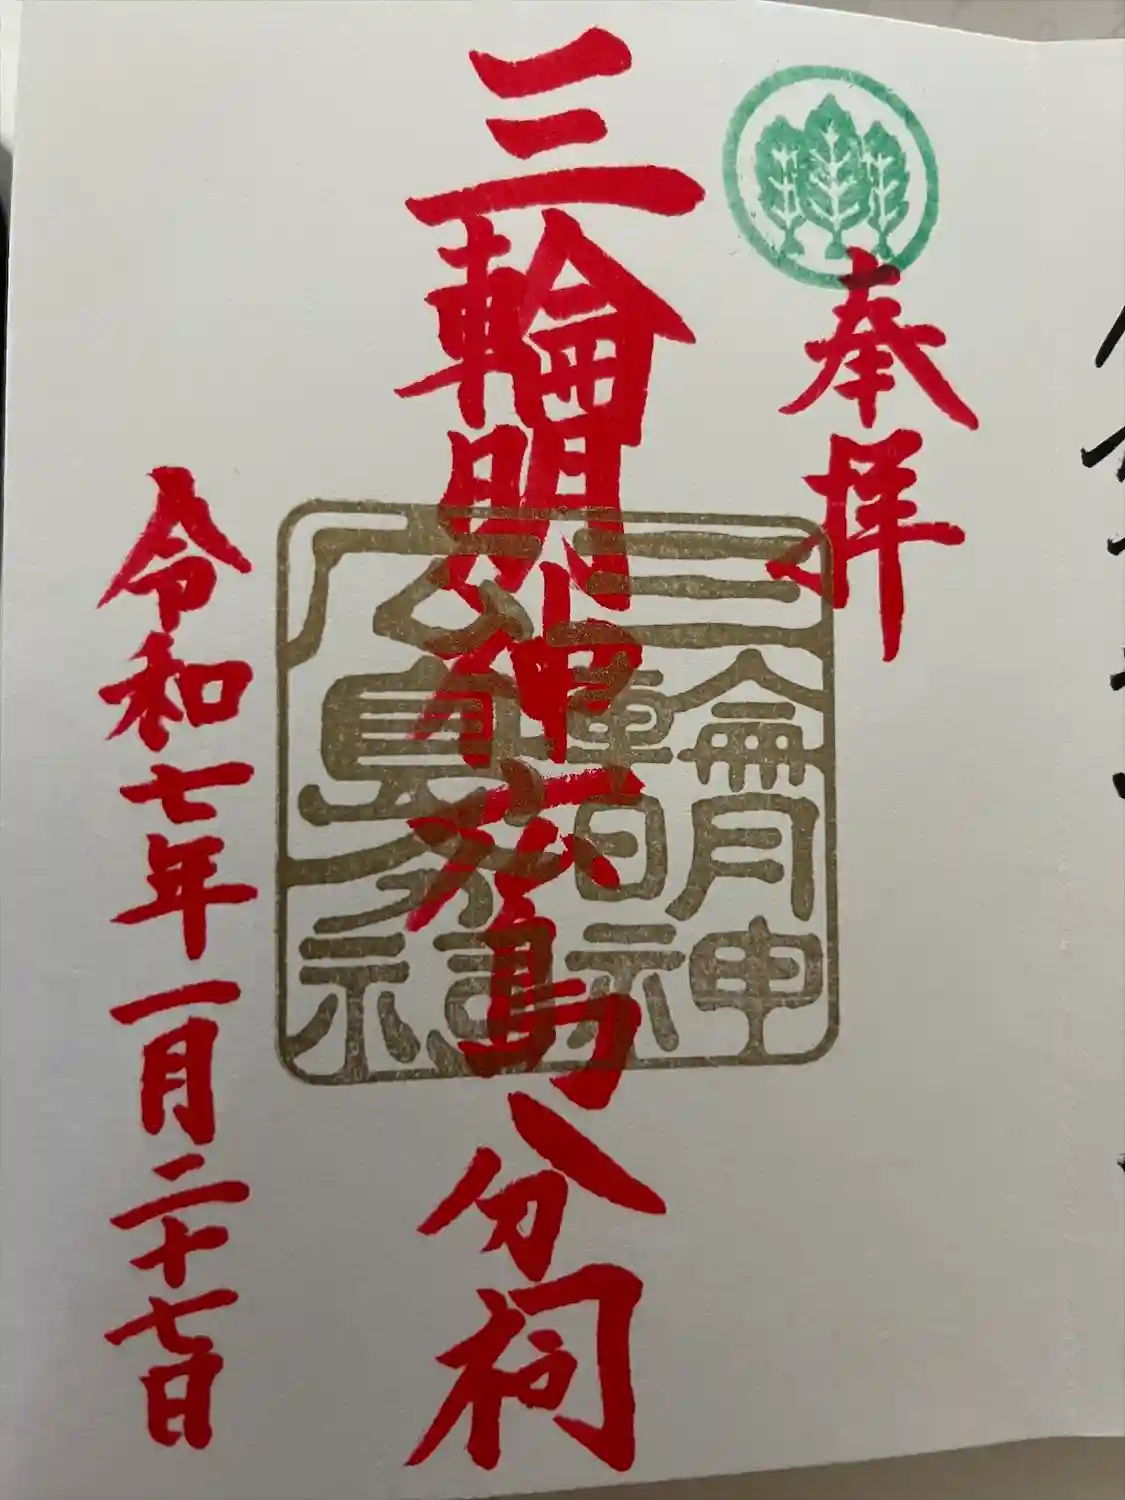 奉拝
三輪明神広島分祠
三輪明神
広島分祠
令和七年一月二十七日